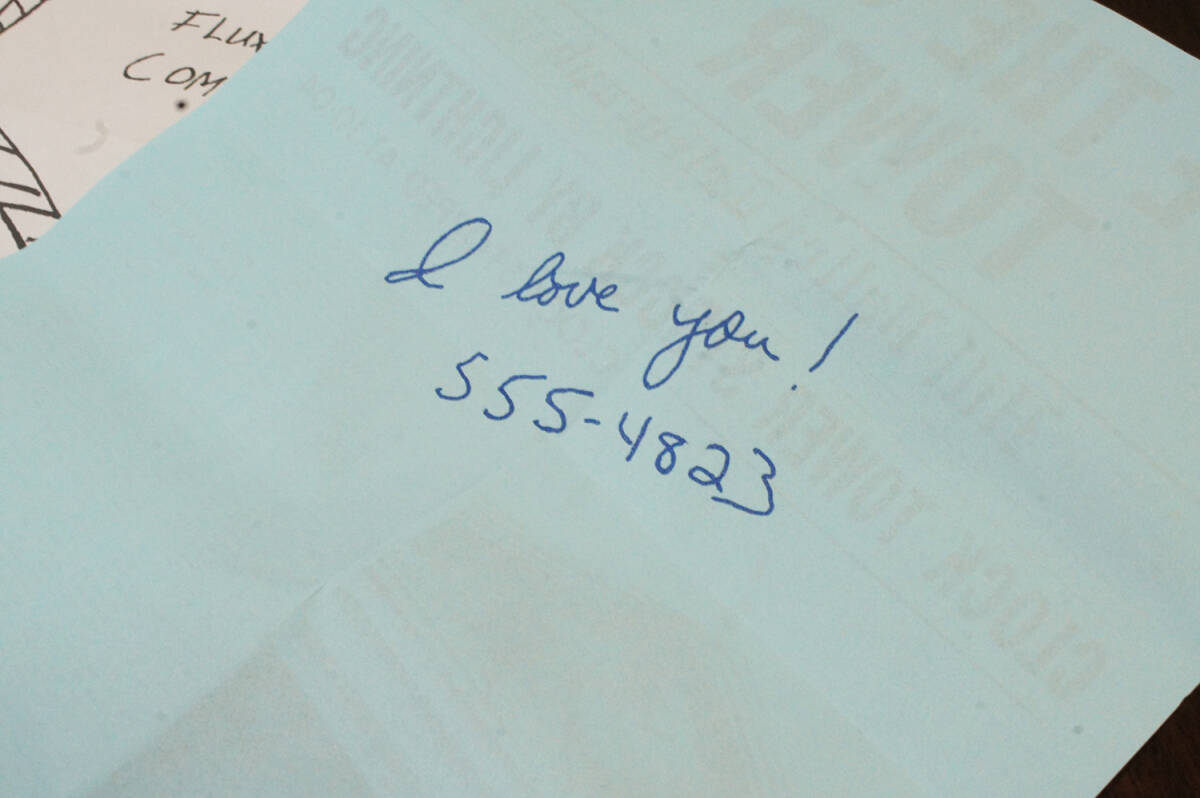 FLUX
COM
I love you!
555-4823
THE
TOWER
CLOCK TOWER STRUCK BY LIGHTNING